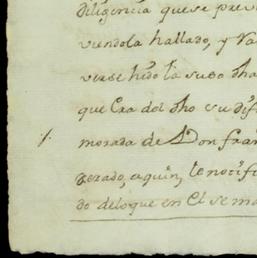 diligencia que se prev
viendola hallado, y Va
verse hido la suso dha
que Era del dho su dif
morada de Don fran
zerado, aquin, le notifi
do deloque en El se ma